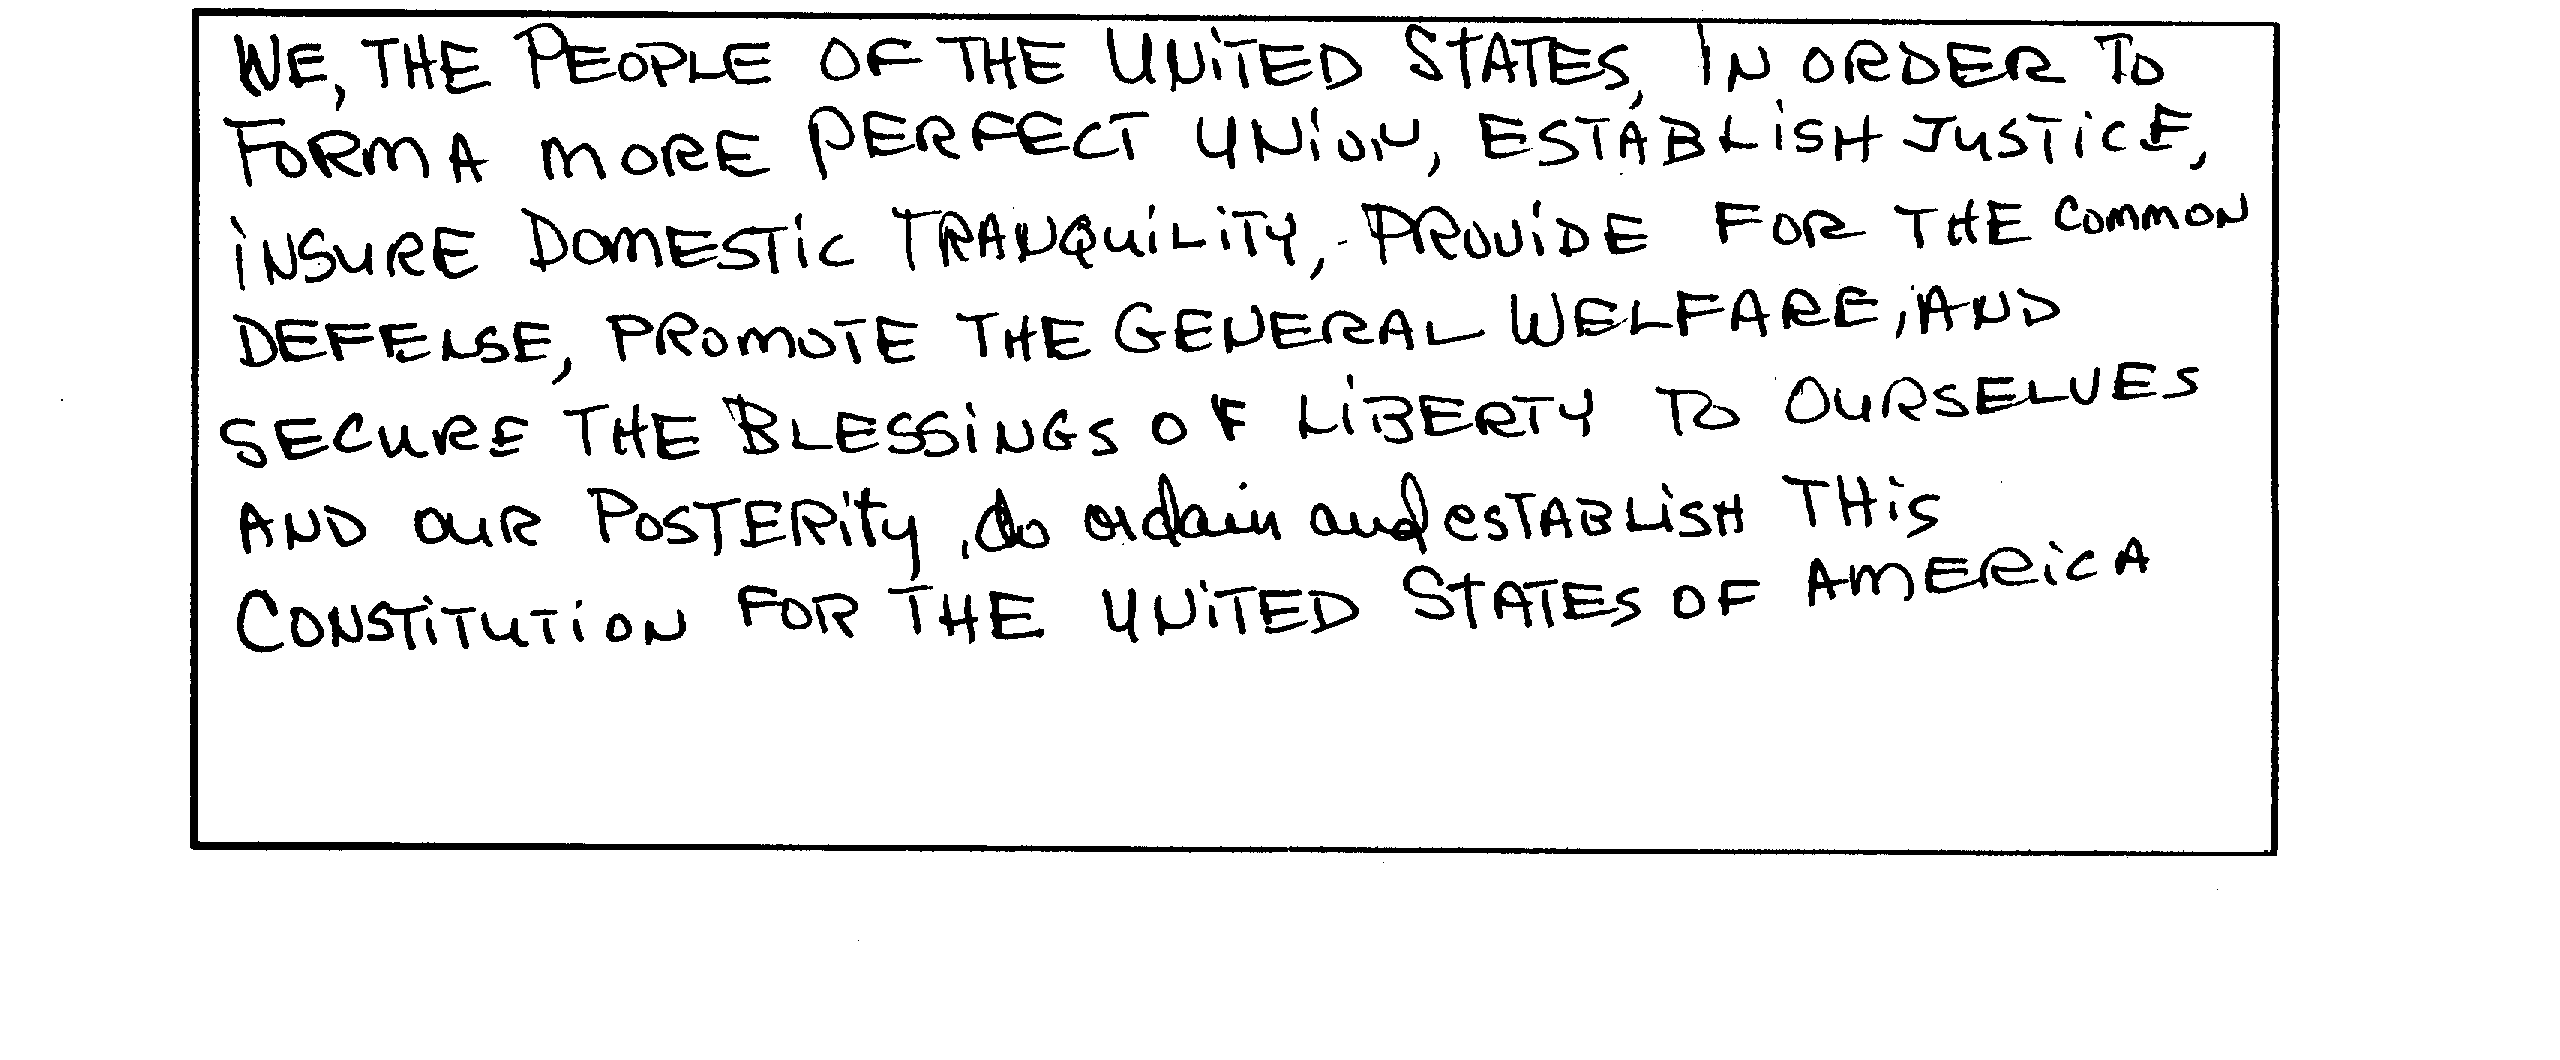 WE, THE PEOPLE OF THE UNiTED STATES, IN ORDER TO
FORM A MORE PERFECT UNiON, ESTABLiSH JUSTiCE,
iNSURE DOMESTiC TRANQUiLiTY, PROViDE FOR THE COMMON
DEFENSE, PROMOTE THE GENERAL WELFARE, AND
SECURE THE BLESSiNGS OF LiBERTY TO OURSELVES
AND OUR POSTERity, do ordain and eSTABLiSH THiS
CONSTiTUTiON FOR THE UNiTED STATES OF AMERiCA